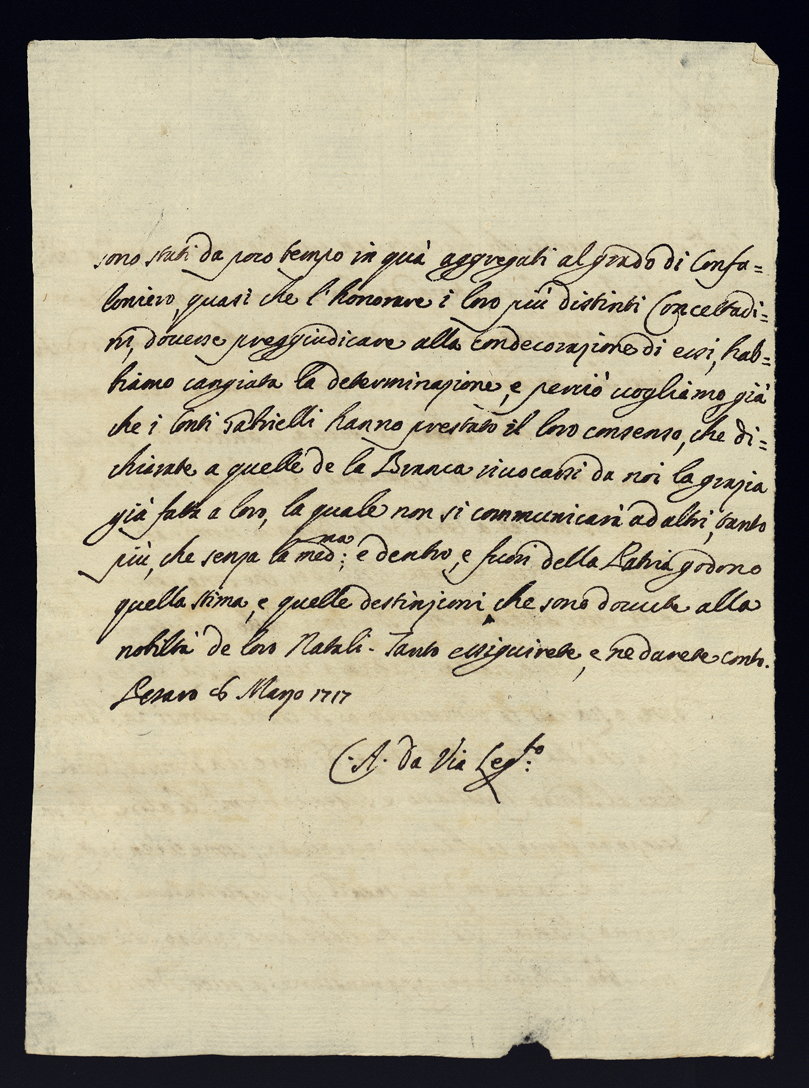 sono stati da poco tempo in quà aggregati al grado di Confa=
loniero, quasi che l'honorare i loro più distinti Conceltadi=
ni, dovesse preggiudicare alla condecorazione di essi, hab=
biamo cangiata la determinazione, e perciò vogliamo, già
che i Conti Gabrielli hanno prestato il loro consenso, che di=
chiarate a quelle de la Branca rivocarsi da noi la grazia
già fatta a loro, la quale non si communicarà ad altri, tanto
più, che senza la med:ma e dentro, e fuori della Patria godono
quella stima, e quelle destinzioni che sono dovute alla
nobiltà de loro Natali. Tanto essiguirete, e ne darete conto.
Pesaro 6 Marzo 1717
C. A. da Via Leg:to